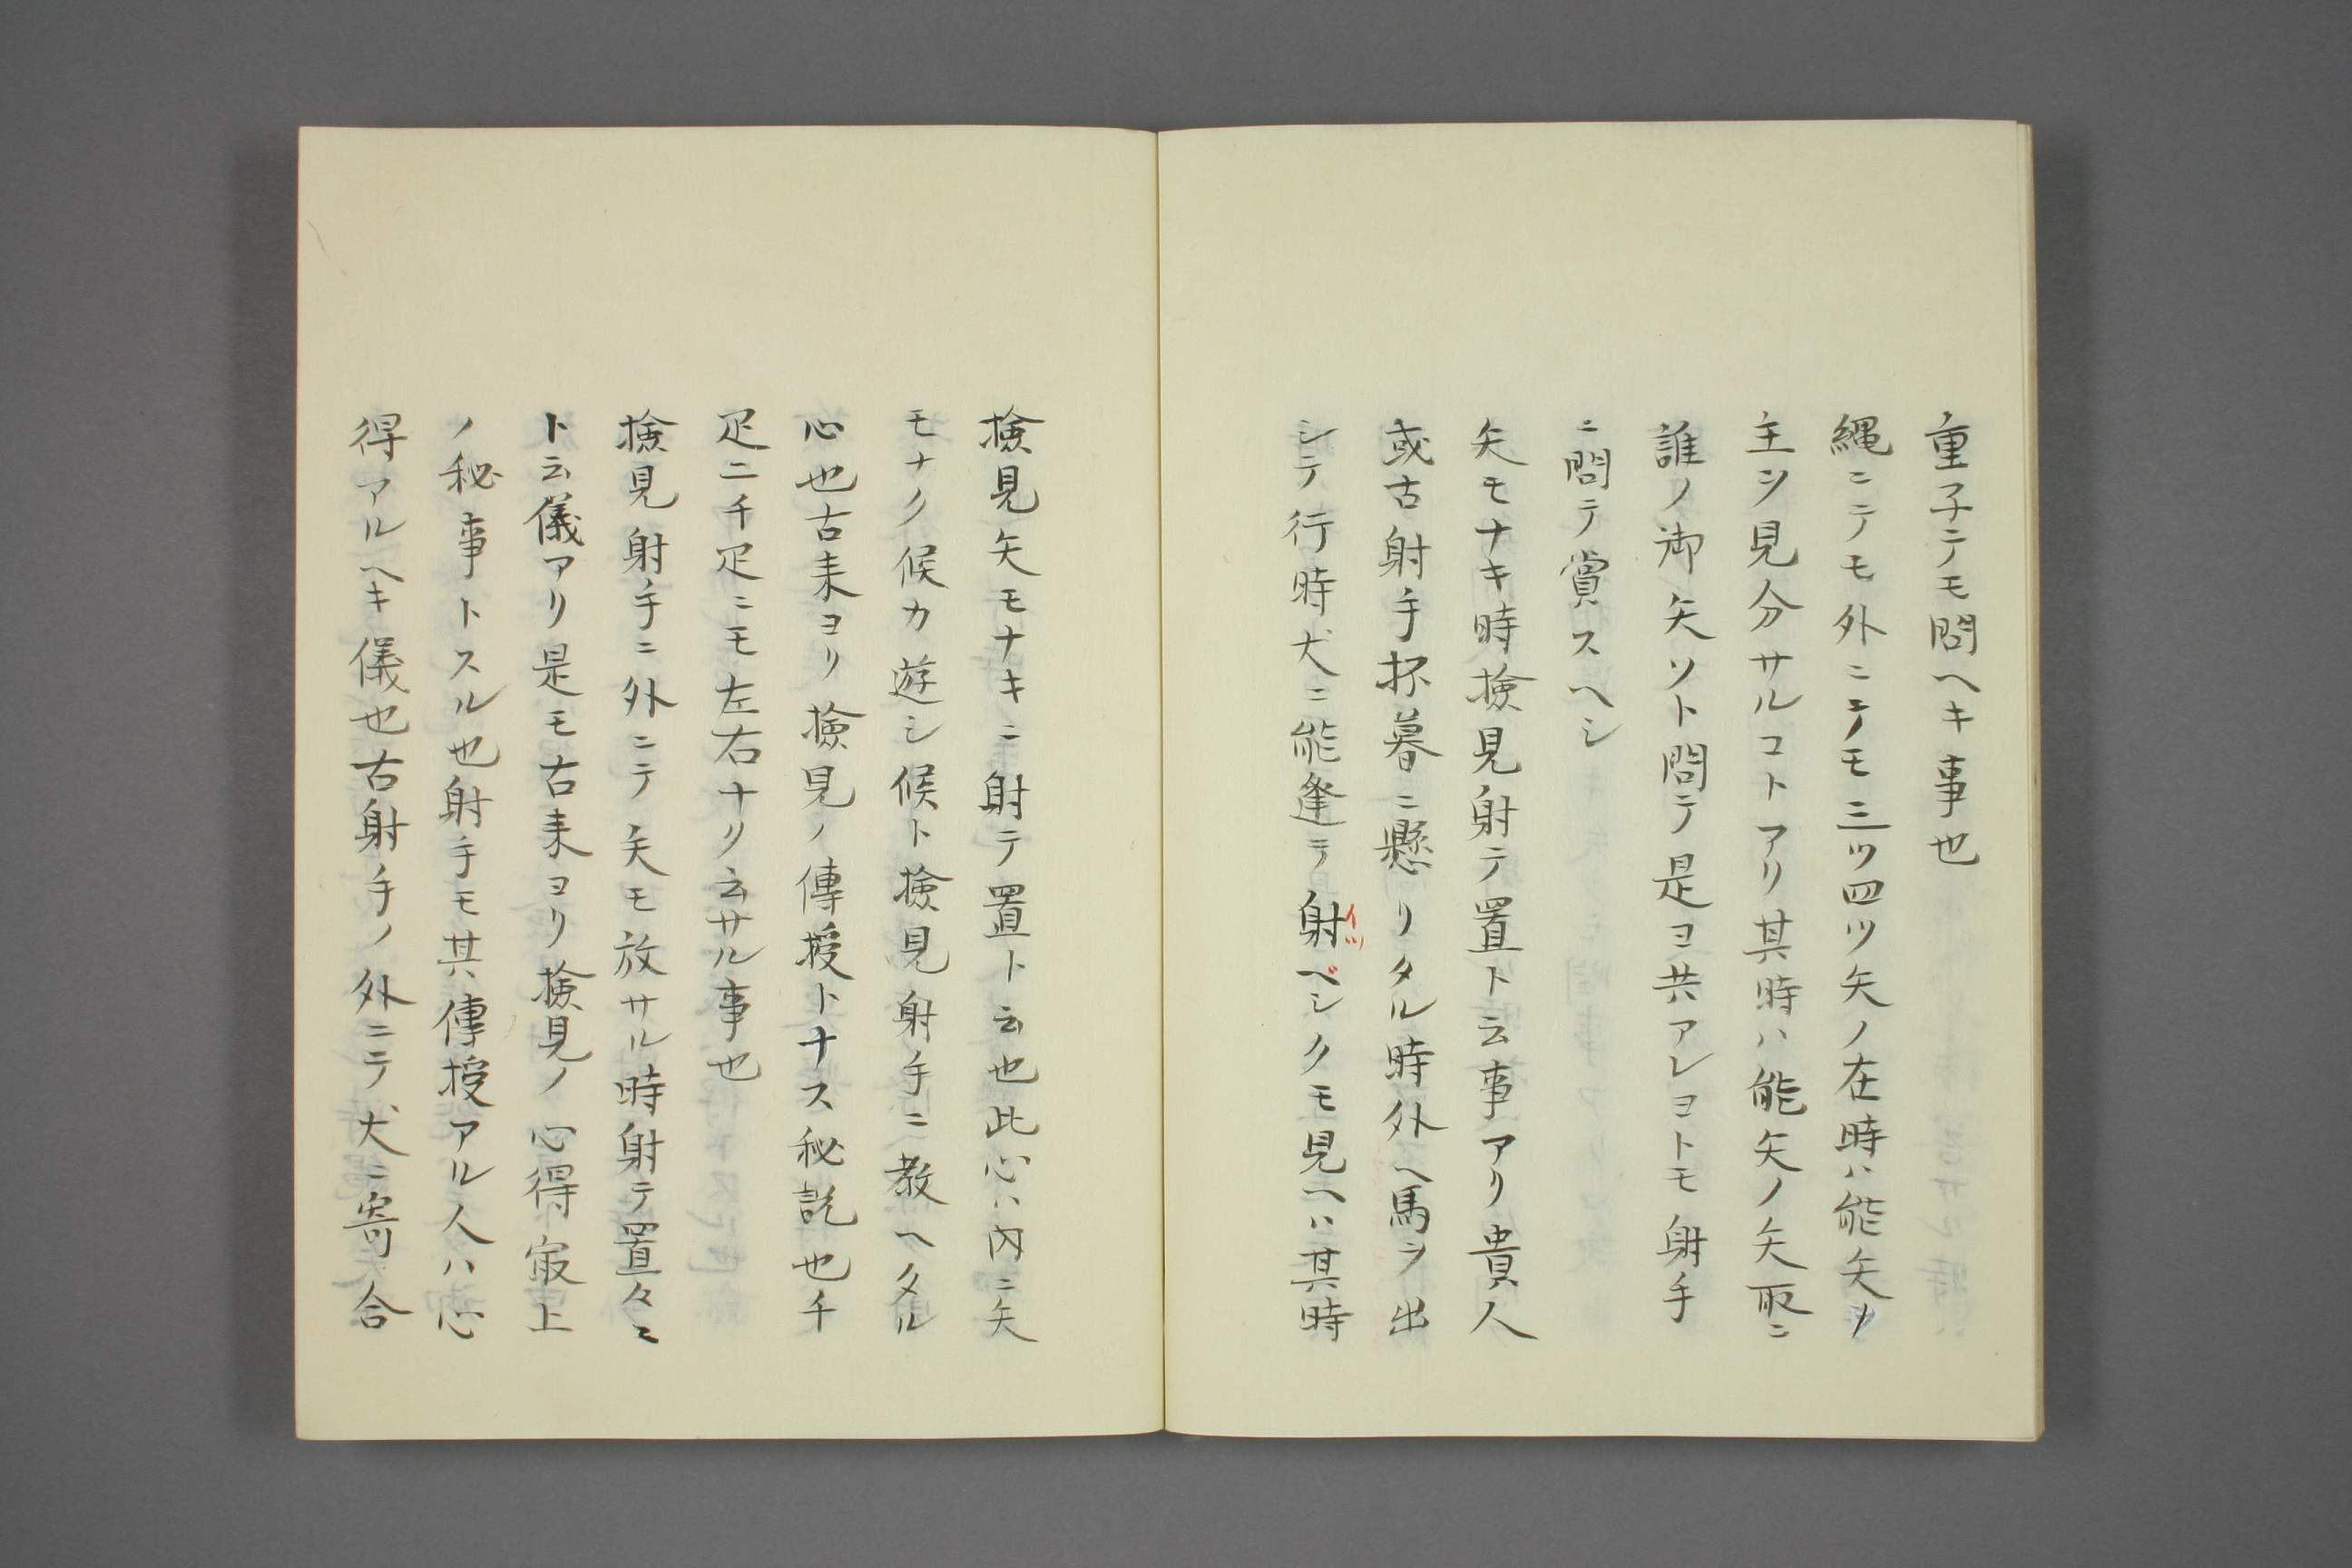 重子テモ問ヘキ事也
縄ニテモ外ニテモ三ツ四ツ矢ノ在時ハ能矢ノ
主ヲ見分サルコトアリ其時ハ能矢ノ矢取ニ
誰ノ御矢ソト問テ是ヨ共アレヨトモ射手
ニ問テ賞スヘシ
矢モナキ時撿見射テ置ト云事アリ貴人
或古射手抔暮ニ懸リタル時外ヘ馬ヲ出
シテ行時犬ニ能逢テ射ベシクモ見ヘハ其時
イツ
撿見矢モナキニ射テ置ト云也此心ハ内ニ矢
モナク候カ遊シ候ト撿見射手ニ教ヘタル
心也古来ヨリ撿見ノ傳授トナス秘説也千
疋二千疋ニモ左右ナク云サル事也
撿見射手ニ外ニテ矢モ放サル時射テ置々々
ト云儀アリ是モ古来ヨリ撿見ノ心得㝡上
ノ秘事トスル也射手モ其傳授アル人ハ心
得アルヘキ儀也古射手ノ外ニテ犬ニ寄合